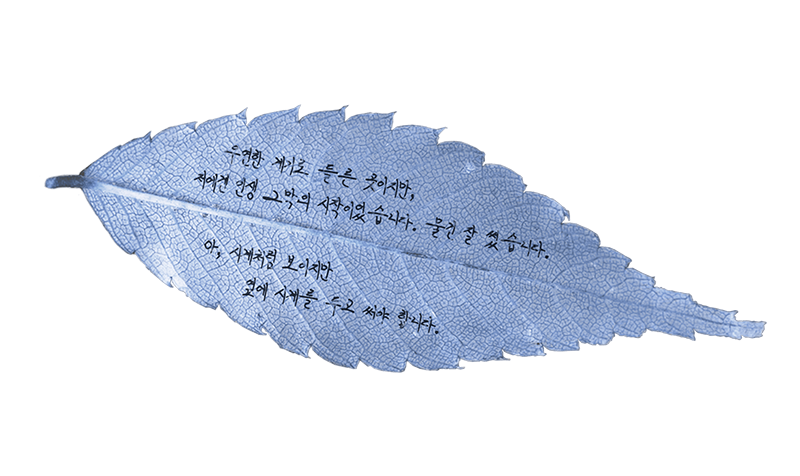 우연한 계기로 들른 곳이지만,
저에겐 인생 2막의 시작이었습니다. 물건 잘 썼습니다.
아, 시계처럼 보이지만
옆에 시계를 두고 써야 합니다.